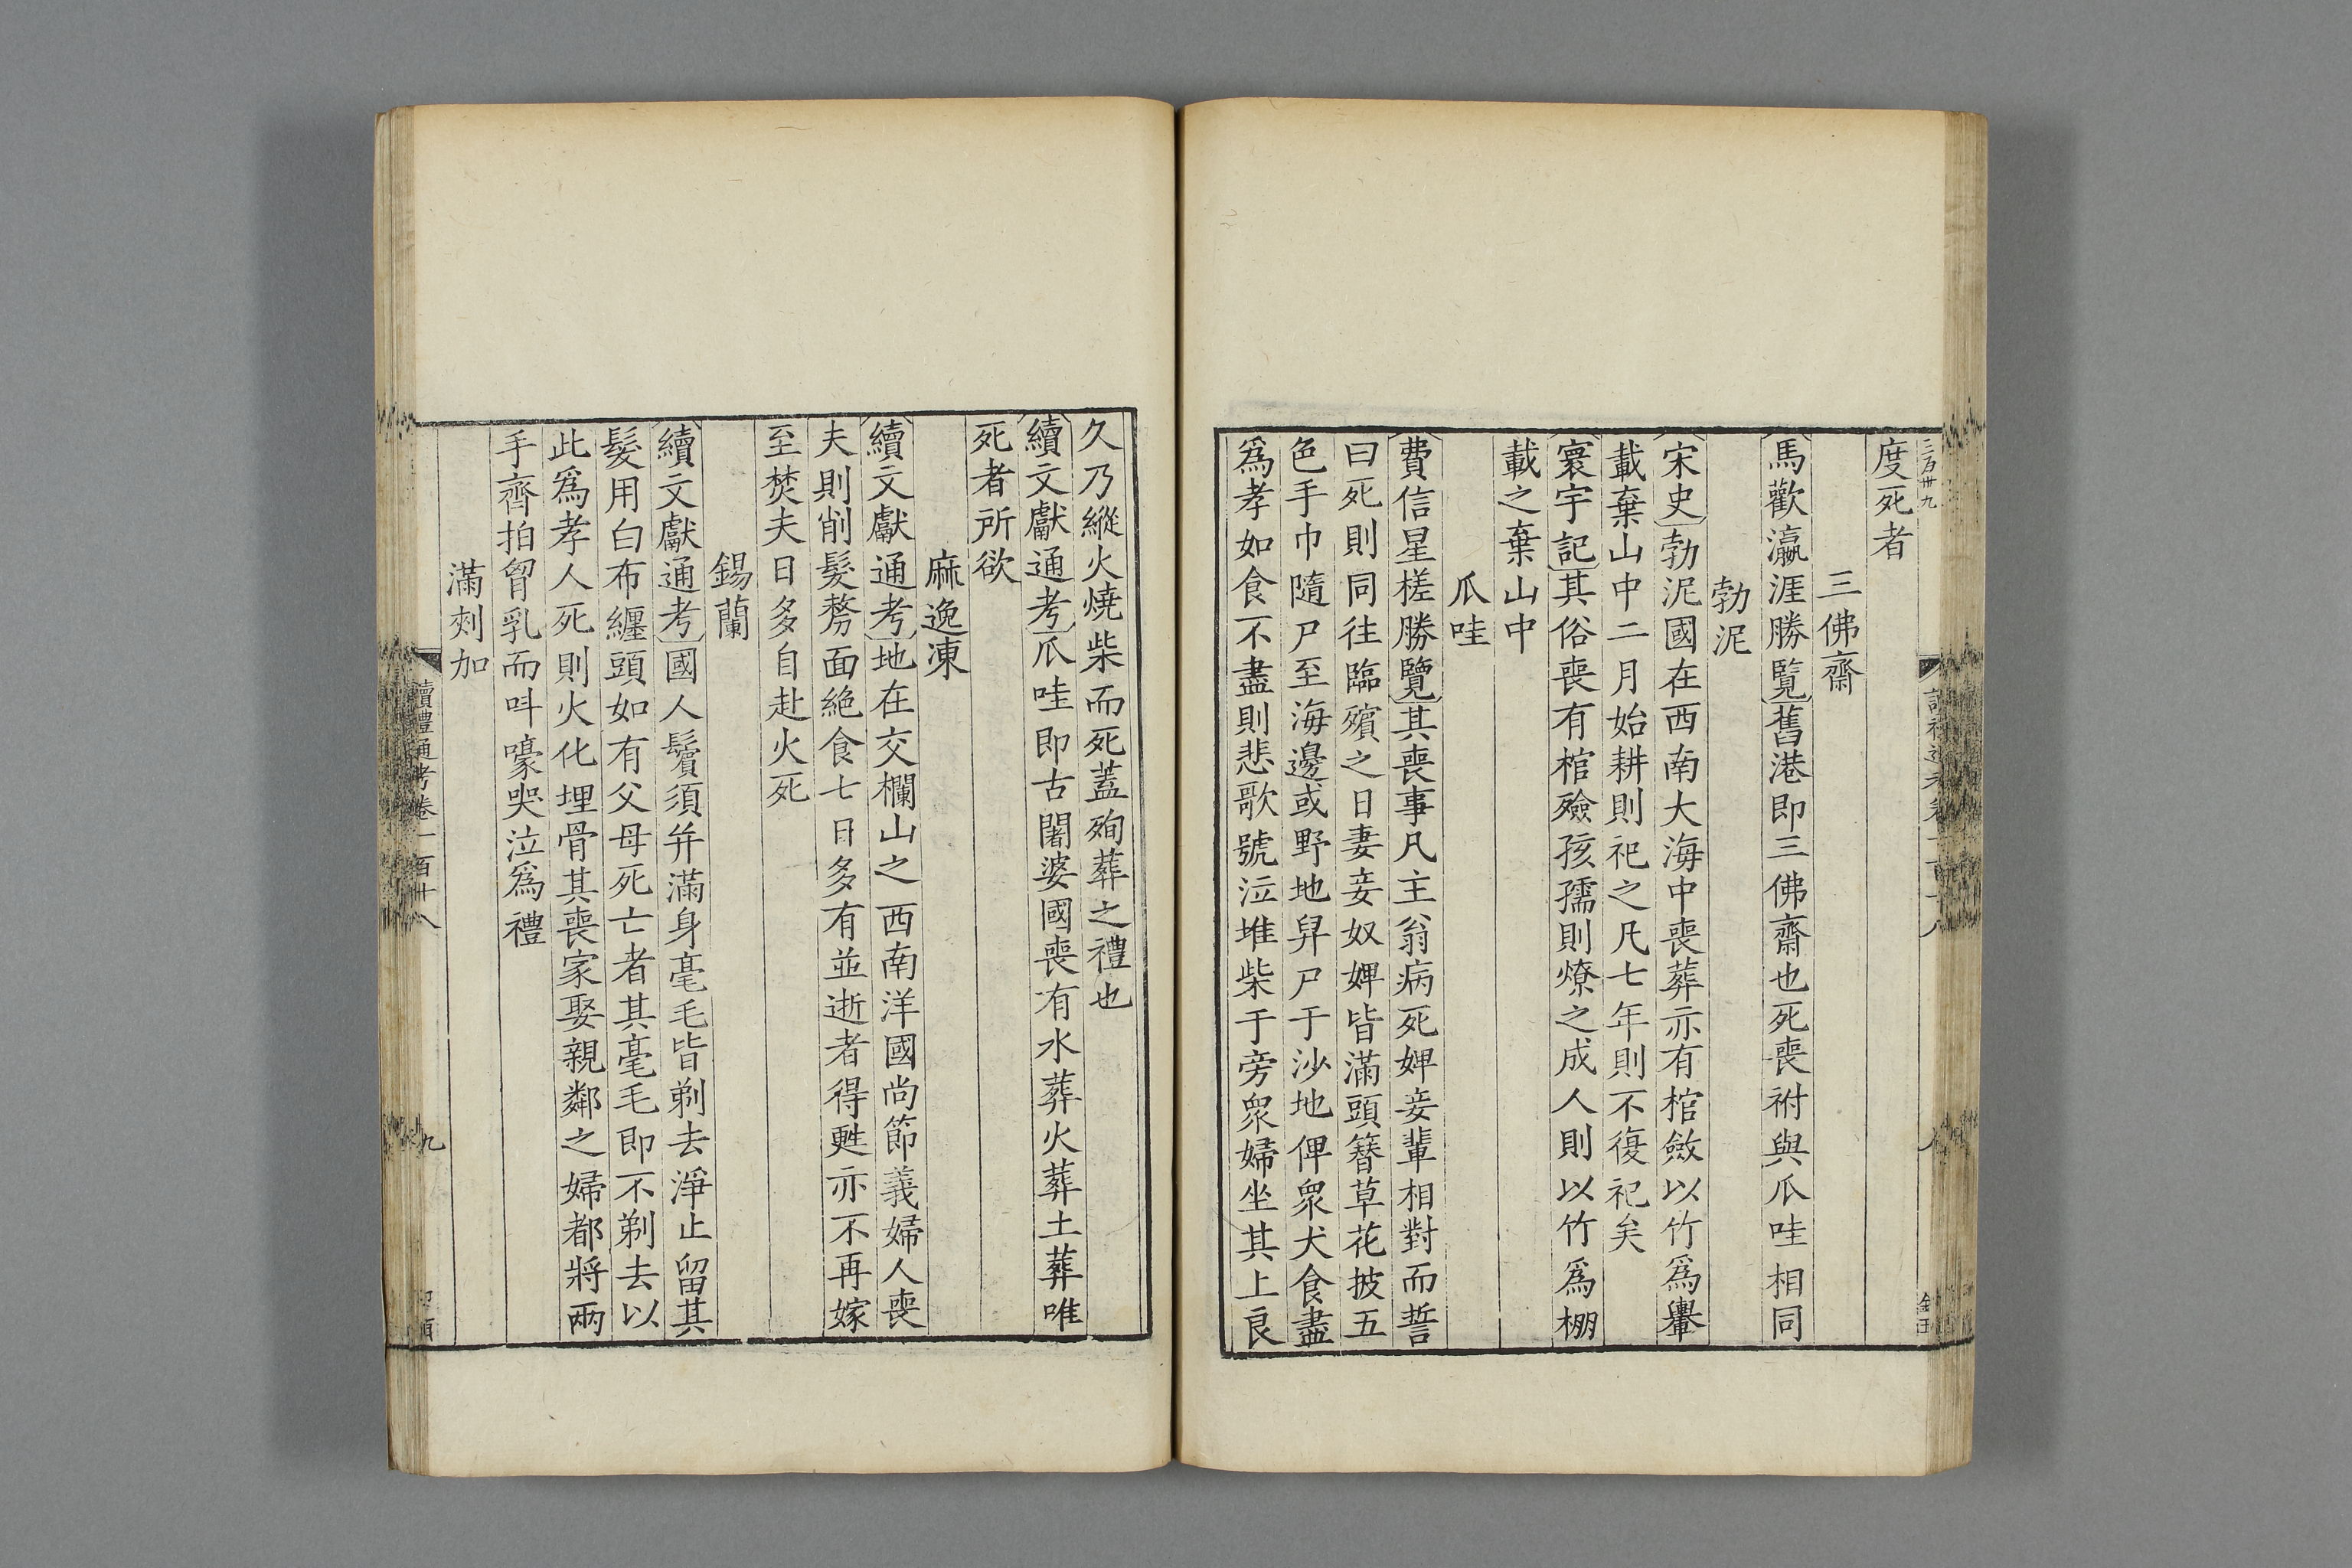 度死者
三佛齋
馬歡瀛涯勝覽舊港即三佛齋也死喪祔與爪哇相同
勃泥
宋史勃泥國在西南大海中喪葬亦有棺斂以竹爲轝
載棄山中二月始耕則祀之凡七年則不復祀矣
寰宇記其俗喪有棺殮孩孺則燎之成人則以竹爲棚
載之棄山中
爪哇
費信星槎勝覽其喪事凡主翁病死婢妾輩相對而誓
曰死則同往臨殯之日妻妾奴婢皆滿頭簪草花披五
色手巾隨尸至海邊或野地舁尸于沙地俾眾犬食盡
爲孝如食不盡則悲歌號泣堆柴于旁眾婦坐其上良
久乃縱火燒柴而死蓋殉葬之禮也
續文獻通考爪哇即古闍婆國喪有水葬火葬土葬唯
死者所欲
麻逸凍
續文獻通考地在交欄山之西南洋國尚節義婦人喪
夫則削髮剺面絕食七日多有並逝者得甦亦不再嫁
至焚夫日多自赴火死
錫蘭
續文獻通考國人鬢須并滿身毫毛皆剃去淨止留其
髮用白布纏頭如有父母死亡者其毫毛即不剃去以
此爲孝人死則火化埋骨其喪家娶親鄰之婦都將兩
手齊拍胷乳而呌嚎哭泣爲禮
滿剌加
讀禮通考卷一百十八
九